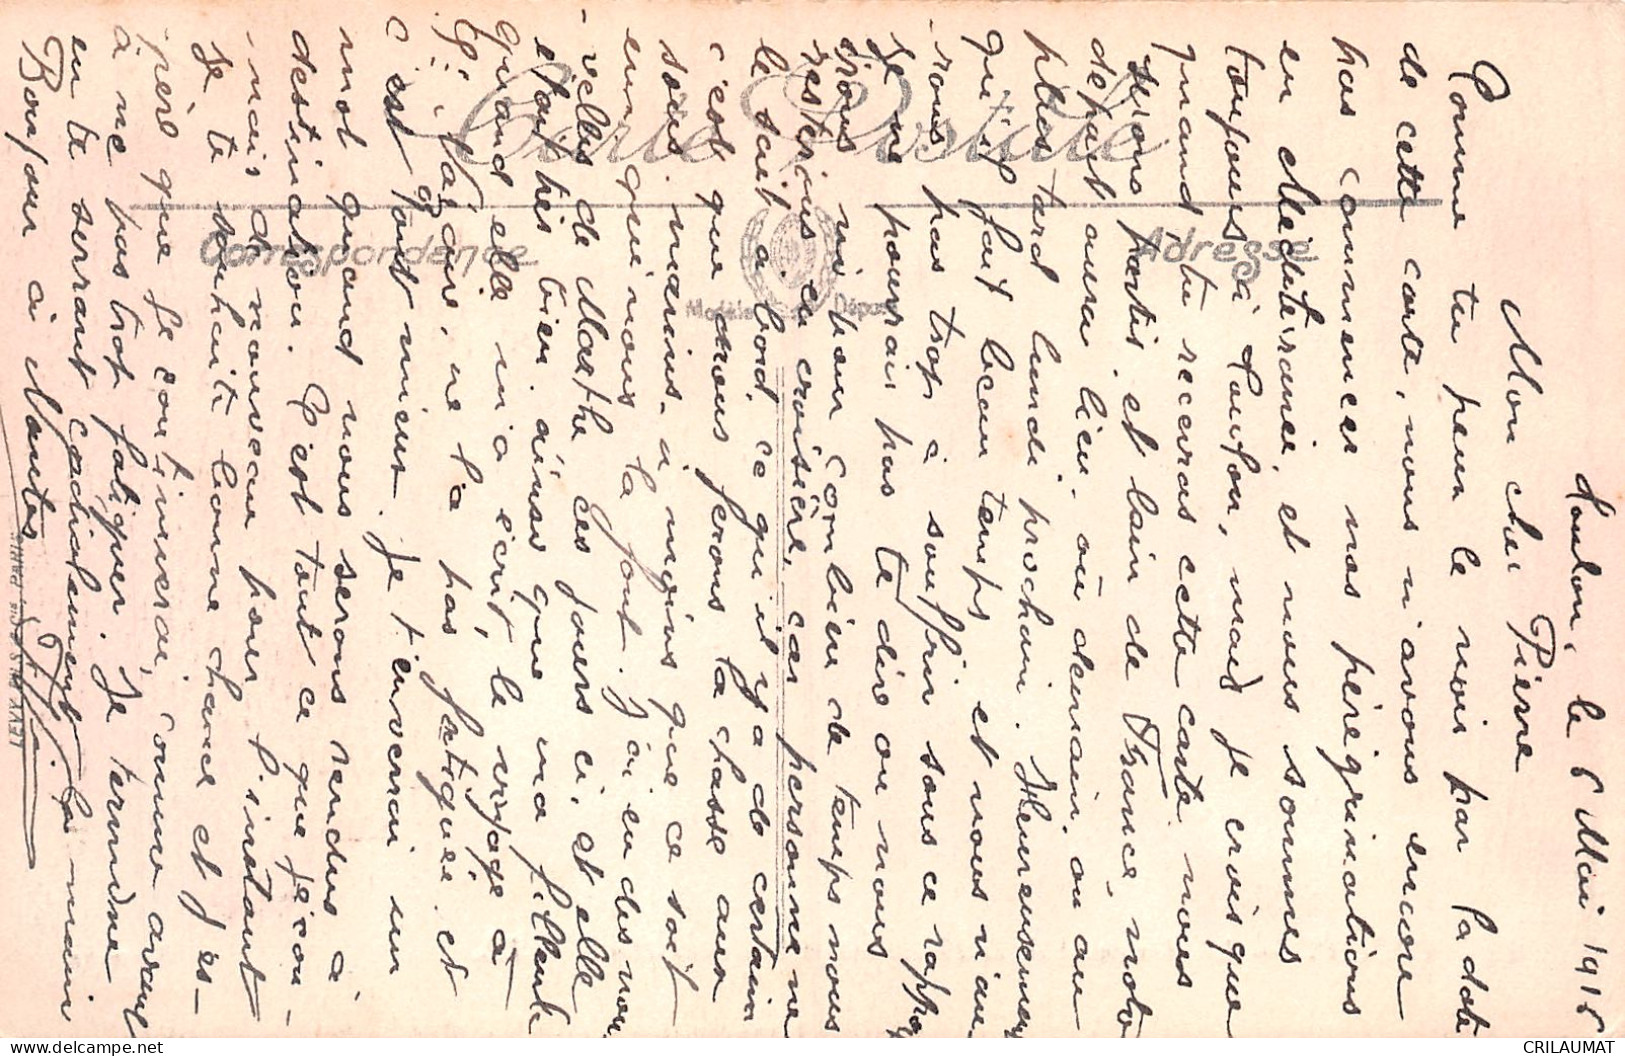 Toulon, le 6 Mai 1915
Mon cher Pierre
Comme tu peux le voir par la date
de cette carte, nous n'avons encore
pas commencer nos pérégrinations
en Méditéranée, et nous sommes
toujours à Toulon, mais je crois que
quand tu recevras cette carte nous
serons partis et loin de France, notre
départ aura lieu, où demain, ou au
plus tard lundi prochain. Heureusement
qu'il fait beau temps, et nous n'au-
rons pas trop à souffrir sous ce rapport
je ne pourrais pas te dire ou nous
irons ni non combien de temps nous
resterons en croisière, car personne ne
le sait à bord, ce qu'il y a de certain
c'est que nous ferons la chasse aux
sous-marins, à moins que ce soit
eux qui nous la font. J'ai eu des nou-
velles de Marthe ces jours ci, et elle
était très bien, ainsi que ma filleule
quand elle m'a écrit, le voyage à
St Nazaire, ne l'a pas fatiguée et
c'est tant mieux. Je t'enverrai un
mot quand nous serons rendus à
destination. C'est tout ce que je con-
nais de nouveau pour l'instant
Je te souhaite bonne chance et j'es-
père que je continuerai, comme avant
à ne pas trop fatiguer. Je termine
en te serrant cordialement la main
Bonjour à Nantes
Carte Postale
Correspondance
Adresse
Modèle Déposé
LEVY FILS & Cie, PARIS
CRILAUMAT